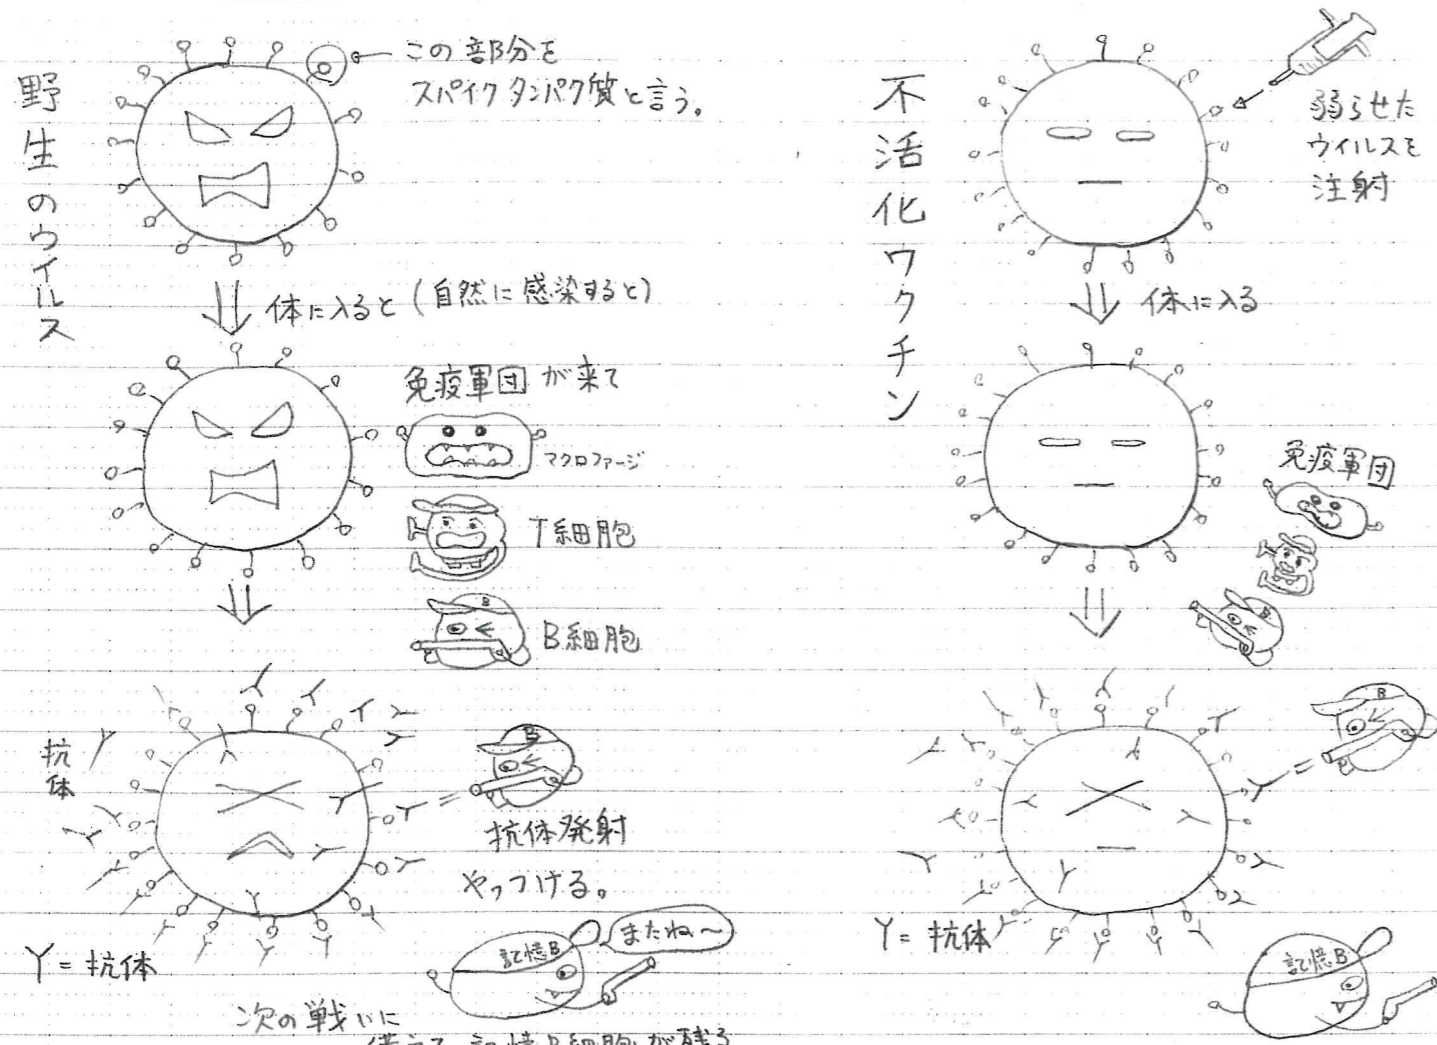 野生のウイルス
この部分を
スパイクタンパク質と言う。
体に入ると(自然に感染すると)
免疫軍団が来て
マクロファージ
T細胞
B
B細胞
抗体
B
抗体発射
やっつける。
Y=抗体
記憶B
またね〜
次の戦いに
備えて記憶B細胞が残る
不活化ワクチン
弱らせた
ウイルスを
注射
体に入る
免疫軍団
B
B
Y=抗体
記憶B